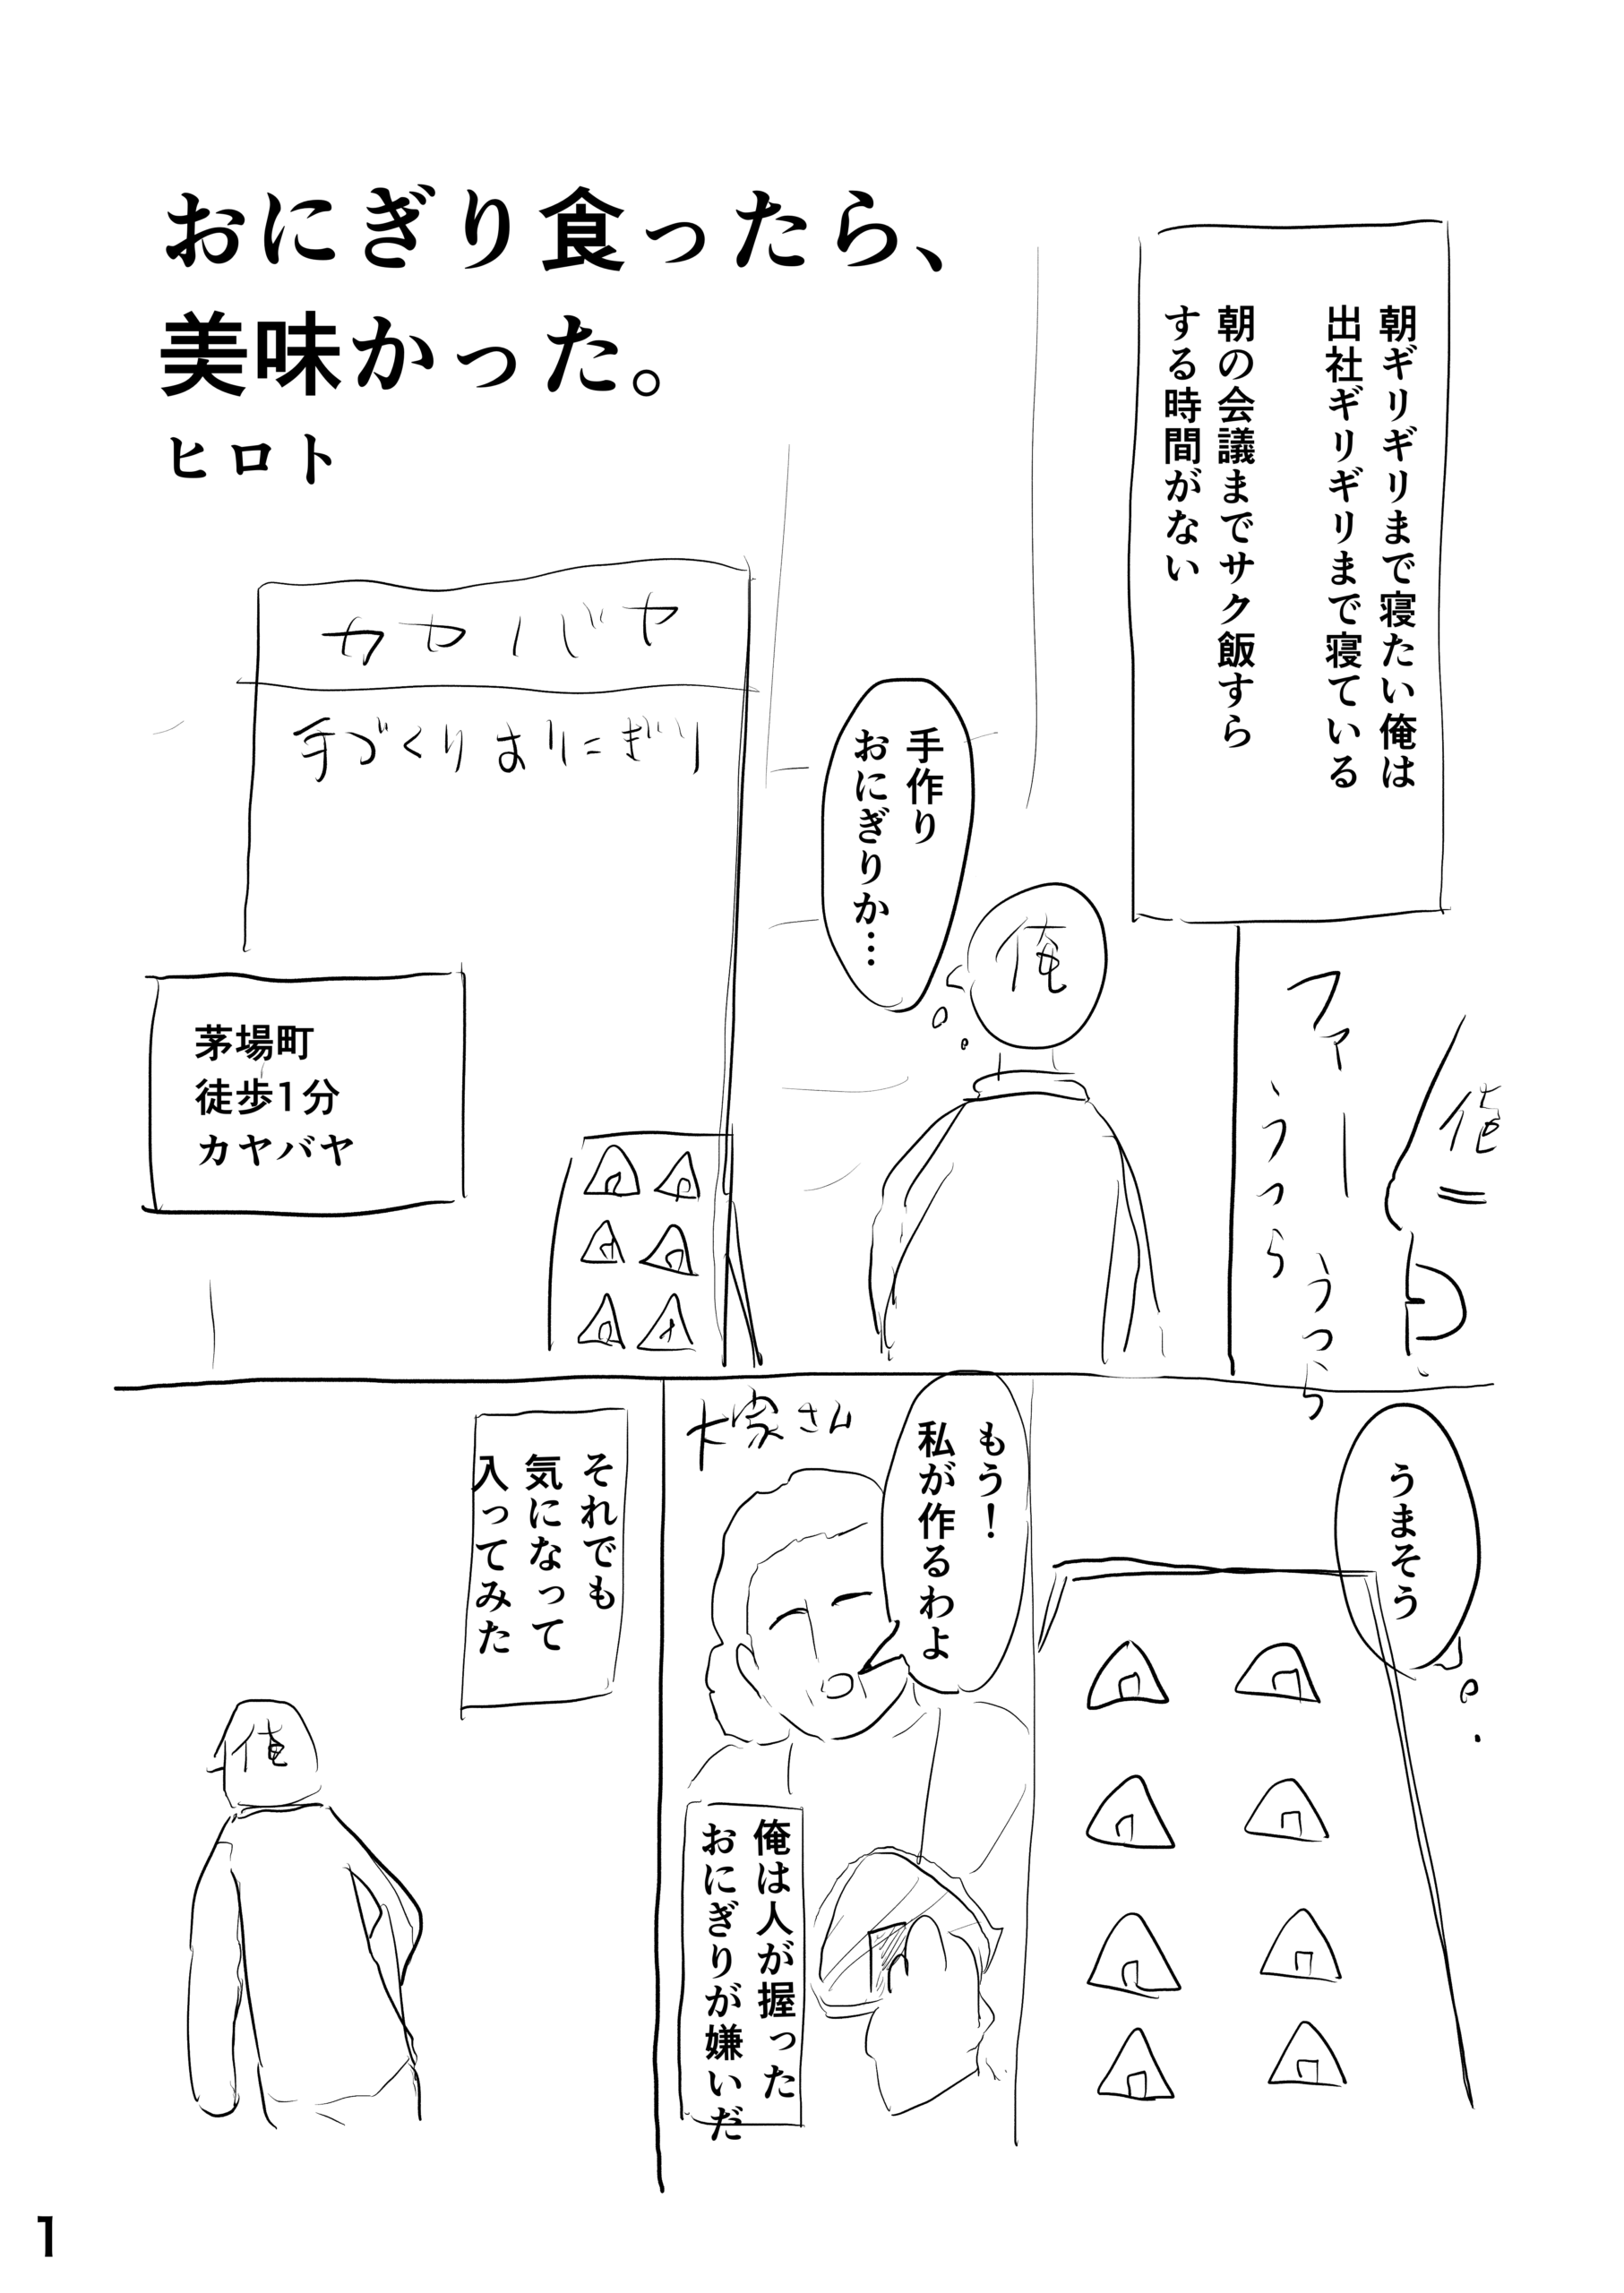 おにぎり食ったら、
美味かった。
ヒロト
朝ギリギリまで寝たい俺は
出社ギリギリまで寝ている
朝の会議までサク飯すら
する時間がない
ファー
うつら
うつら
俺
手作り
おにぎりか…
俺
カヤバヤ
手づくりおにぎり
茅場町
徒歩1分
カヤバヤ
うまそう
もう！
私が作るわよ
大家さん
俺は人が握った
おにぎりが嫌いだ
それでも
気になって
入ってみた
俺
1